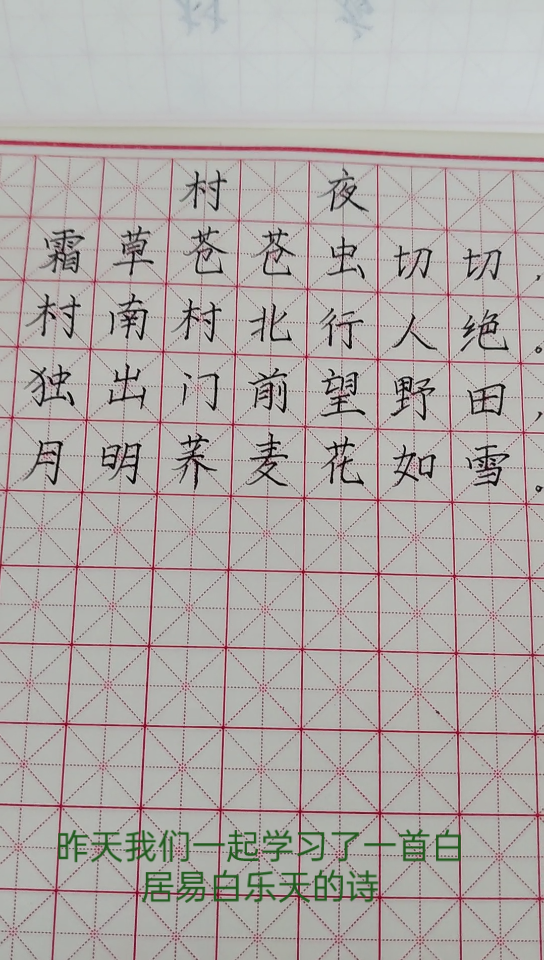 村夜
霜草苍苍虫切切,
村南村北行人绝。
独出门前望野田,
月明荞麦花如雪。
昨天我们一起学习了一首白
居易白乐天的诗